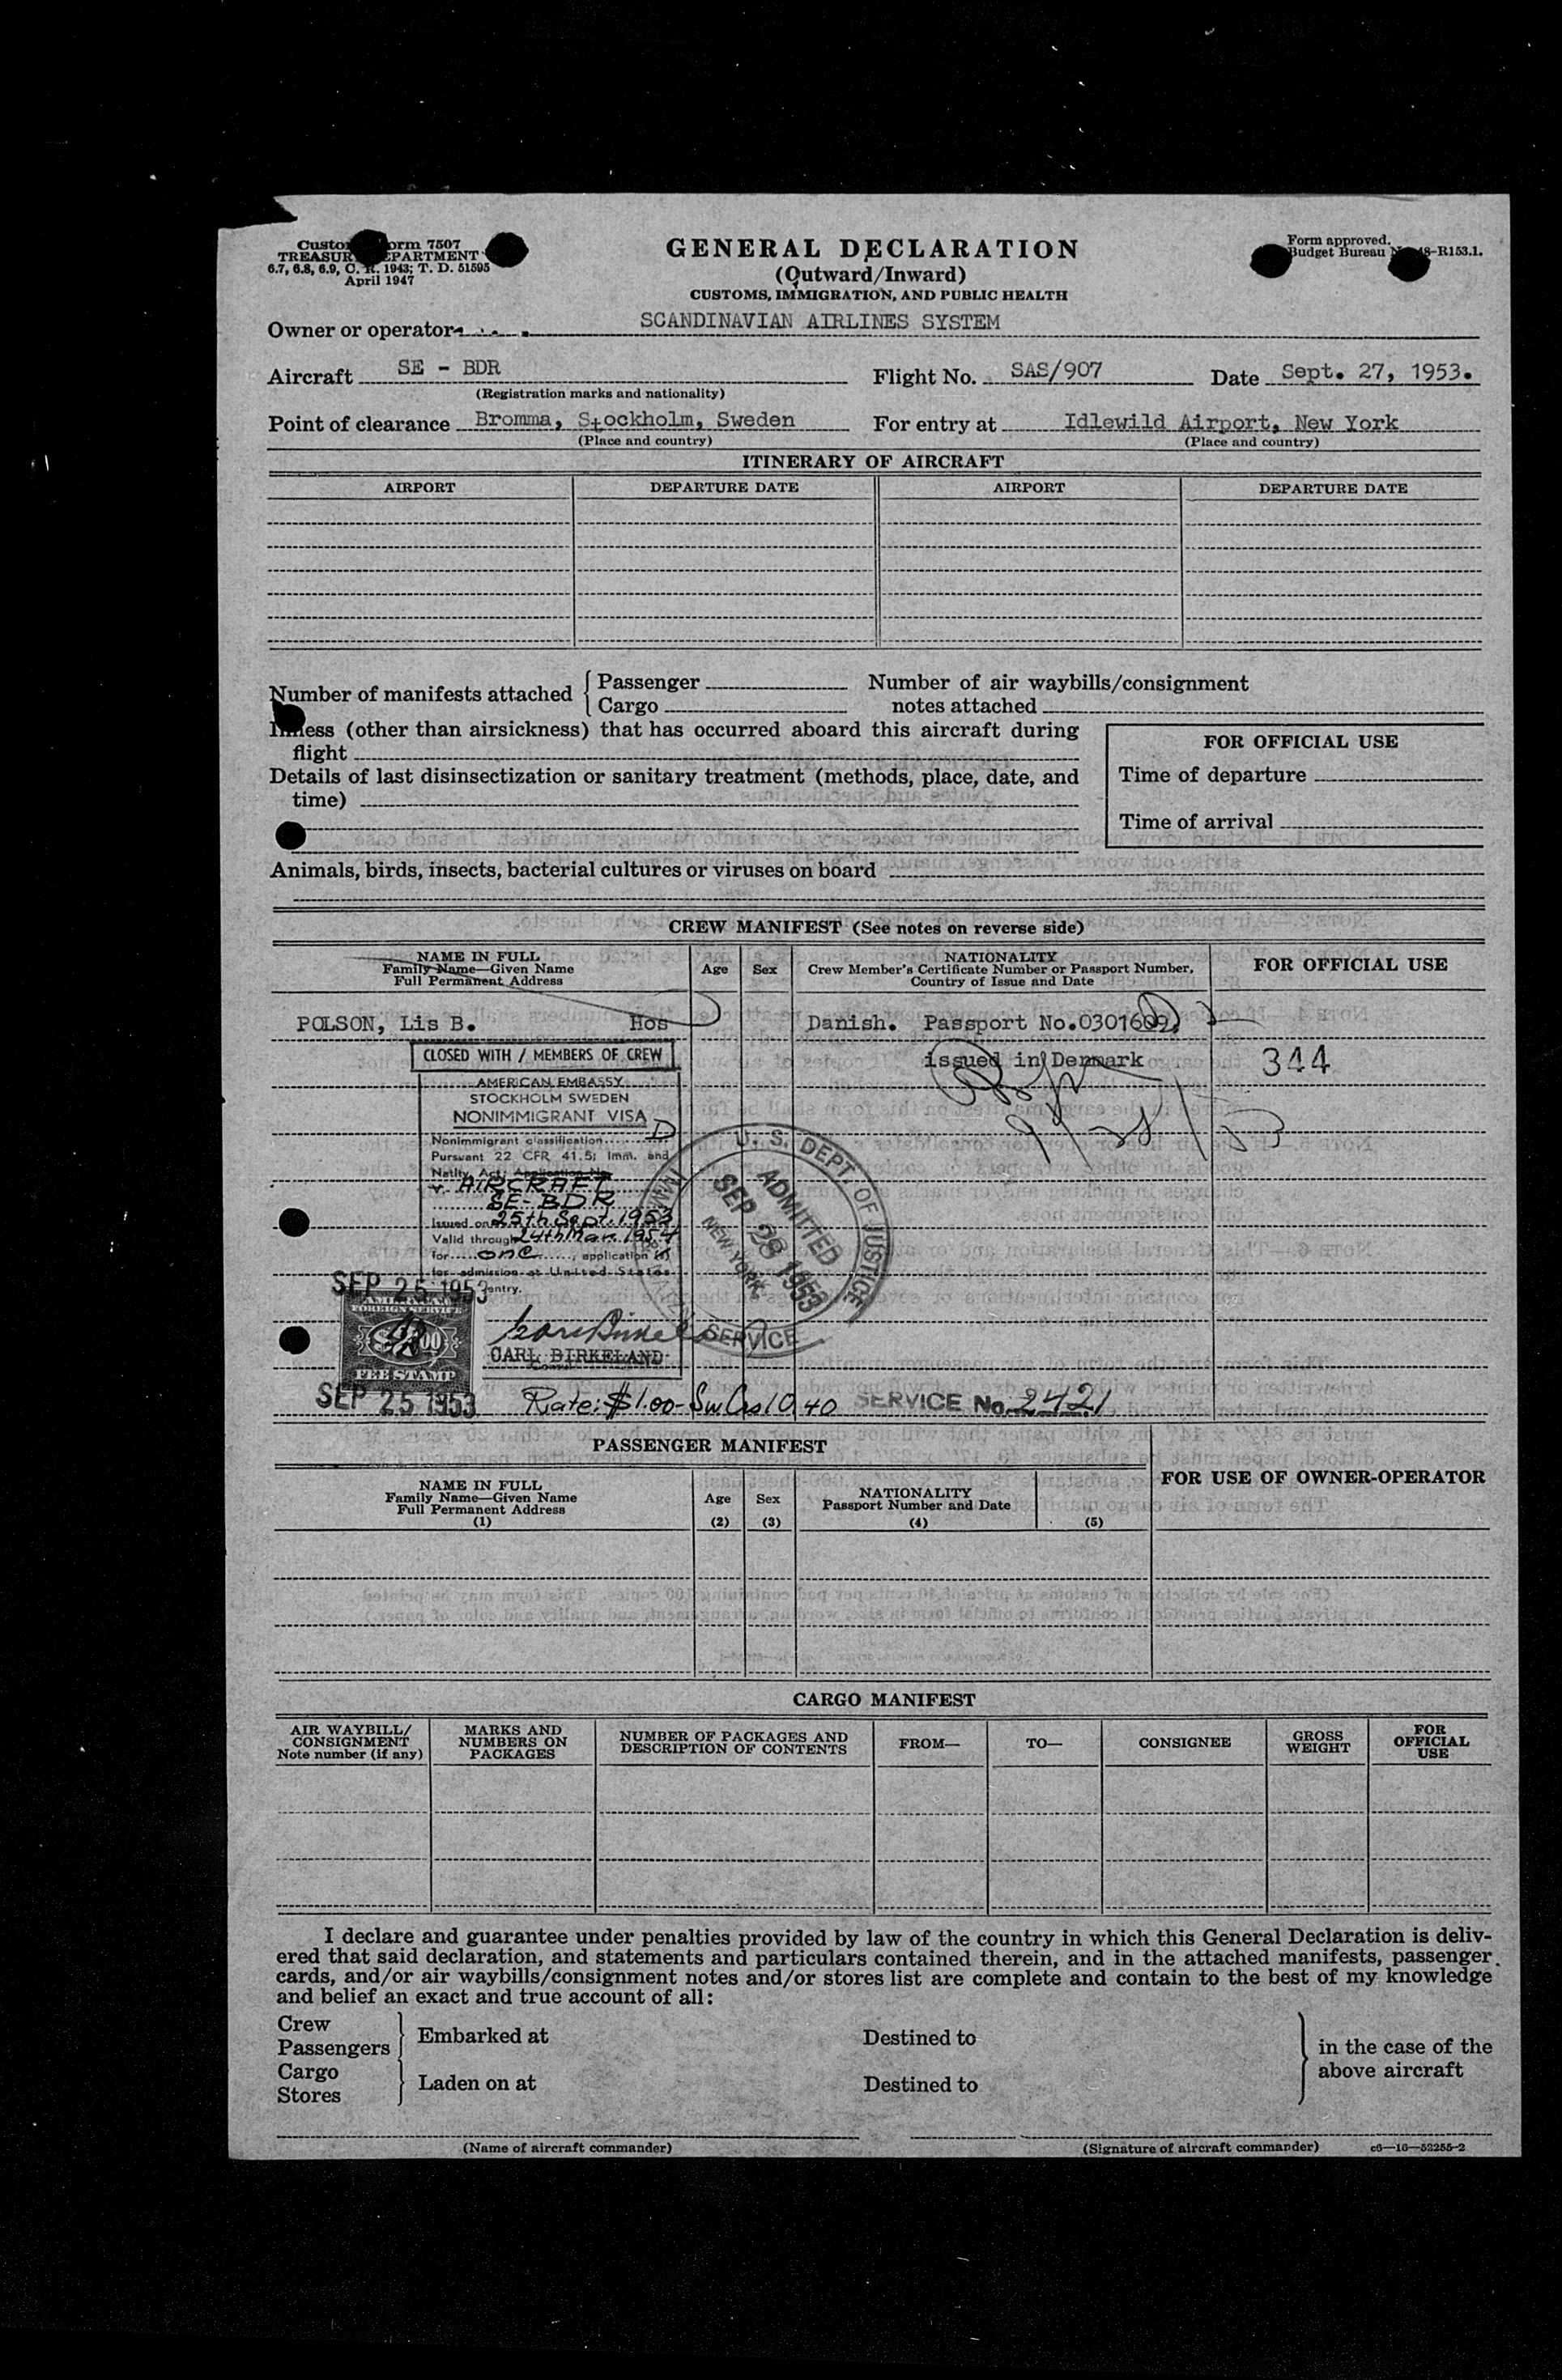 Form 7507
TREASURY DEPARTMENT
6.7, 6.8, 6.9, C. R. 1943; T. D. 51595
April 1947
GENERAL DECLARATION
(Outward/Inward)
CUSTOMS, IMMIGRATION, AND PUBLIC HEALTH
Form approved.
Budget Bureau -R153.1.
Owner or operator SCANDINAVIAN AIRLINES SYSTEM
Aircraft SE - BDR Flight No. SAS/907 Date Sept. 27, 1953.
(Registration marks and nationality)
Point of clearance Bromma, Stockholm, Sweden For entry at Idlewild Airport, New York
(Place and country) (Place and country)
ITINERARY OF AIRCRAFT
AIRPORT DEPARTURE DATE AIRPORT DEPARTURE DATE
Number of manifests attached { Passenger
Cargo
Number of air waybills/consignment
notes attached
Illness (other than airsickness) that has occurred aboard this aircraft during
flight
Details of last disinsectization or sanitary treatment (methods, place, date, and
time)
FOR OFFICIAL USE
Time of departure
Time of arrival
Animals, birds, insects, bacterial cultures or viruses on board
CREW MANIFEST (See notes on reverse side)
NAME IN FULL
Family Name—Given Name
Full Permanent Address
Age
Sex
NATIONALITY
Crew Member's Certificate Number or Passport Number,
Country of Issue and Date
FOR OFFICIAL USE
POLSON, Lis B. Hos Danish. Passport No.0301609,
issued in Denmark
344
9/28/53
CLOSED WITH 1 MEMBERS OF CREW
AMERICAN EMBASSY
STOCKHOLM SWEDEN
NONIMMIGRANT VISA
Nonimmigrant classification D
Pursuant 22 CFR 41.5; Imm. and
Natlty. Act; Application No.
AIRCRAFT
SE-BDR
Issued on 25th Sept. 1953
Valid through 24th Mar. 1954
for one application
for admission at United States
entry.
SEP 25 1953
AMERICAN
FOREIGN SERVICE
FEE STAMP
SEP 25 1953
CARL BIRKELAND
U. S. DEPT. OF JUSTICE
ADMITTED
SEP 28 1953
NEW YORK
SERVICE
Rate: $1.00- Sw Crs 10.40 SERVICE No. 2421
PASSENGER MANIFEST
FOR USE OF OWNER-OPERATOR
NAME IN FULL
Family Name—Given Name
Full Permanent Address
(1)
Age
(2)
Sex
(3)
NATIONALITY
Passport Number and Date
(4)
(5)
CARGO MANIFEST
AIR WAYBILL/
CONSIGNMENT
Note number (if any)
MARKS AND
NUMBERS ON
PACKAGES
NUMBER OF PACKAGES AND
DESCRIPTION OF CONTENTS
FROM—
TO—
CONSIGNEE
GROSS
WEIGHT
FOR
OFFICIAL
USE
I declare and guarantee under penalties provided by law of the country in which this General Declaration is deliv-
ered that said declaration, and statements and particulars contained therein, and in the attached manifests, passenger
cards, and/or air waybills/consignment notes and/or stores list are complete and contain to the best of my knowledge
and belief an exact and true account of all:
Crew
Passengers
Embarked at Destined to
Cargo
Stores
Laden on at Destined to
in the case of the
above aircraft
(Name of aircraft commander) (Signature of aircraft commander) c6—16—52255-2